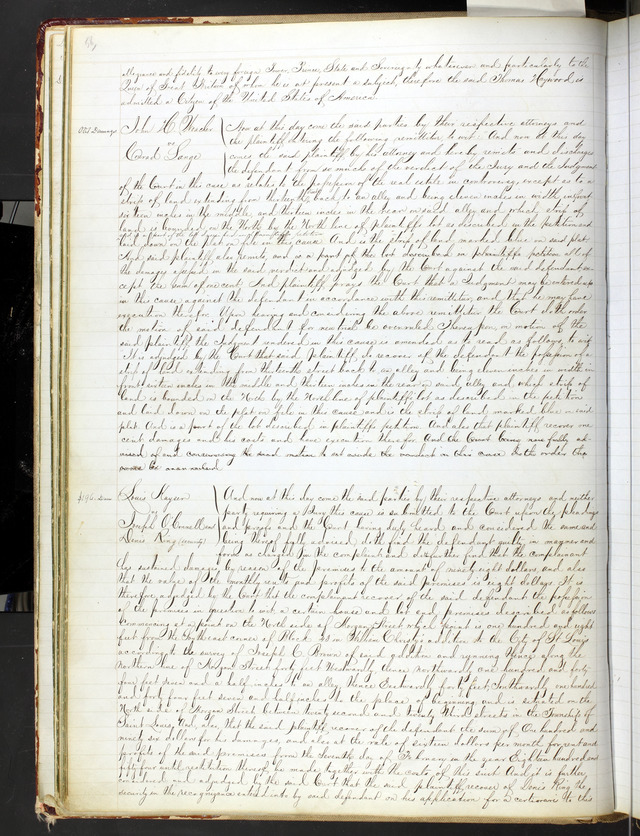 Allegiance and fidelity to every foreign Power, Prince, State and Sovereignty whatever and particularly to the
Queen of Great Britain of whom he is at present a subject, therefore the said Thomas Heywood is
admitted a Citizen of the United States of America
John H. Now at this day come the said parties by their respective attorneys and
vs the plaintiff enters the following remittitur to wit. And now at this day
Conrad Lange comes the said plaintiff by his attorney and hereby remits and discharges
the defendant from so much of the verdict of the Jury and the Judgment
of the Court in the case as relates to the possession of the real estate in controversy, except as to a
strip of land extending from the tenth street back to an alley and being eleven inches in width in front
sixteen inches in the middle, and thirteen inches in the rear on said alley and which strip of
land is bounded on the North by the North line of plaintiffs lot as described in the petition and
laid down on the plat on file in this cause. And is the strip of land marked blue in said plat
And said plaintiff also remits, and is a part of the lot described in plaintiffs petition all of
the damages in the said verdict and adjudged by the Court against the said defendant ex-
cept the sum of one cent, And plaintiff prays the Court that a Judgment may be entered up
in this cause against the defendant in accordance with this remittitur, and that he may have
execution therefor. Upon hearing and considering the above remittitur the Court doth order
the motion of said defendant for new trial be overruled. Thereupon, on motion of the
said plaintiff, the Judgment rendered in this cause is amended so as to read as follows, to wit
It is adjudged by the Court that said Plaintiff, do recover of the defendant the possession of a
strip of land extending from the tenth street back to an alley and being eleven inches in width in
front sixteen inches in the middle and thirteen inches in the rear on said alley and which strip of
land is bounded on the North by the North line of plaintiffs lot as described in the petition
and laid down on the plat on file in this cause and is the strip of land marked blue in said
plat. And is a part of the lot described in plaintiffs petition. And also that plaintiff recover one
cent damages and his costs and have execution therefor. And the Court being now fully ad-
vised of and concerning the said motion to set aside the in this cause doth order the
same be overruled.
Louis Kayser And now at this day come the said parties by their respective attorneys and neither
vs party requiring a Jury this cause is submitted to the Court upon the pleadings
Joseph O'Connell and and proofs and the Court having duly heard and considered the same and
Denis King (security) being thereof fully advised doth find the defendant guilty in manner and
form as charged in the complaint and doth further find that the complainant
has sustained damages by reason of the premises to the amount of ninety eight dollars, and also
that the value of the monthly rents and profits of the said premises is eight dollars. It is
therefore adjudged by the Court that the complainant recover of the said defendant the possession
of the premises in question to wit a certain house and lot and premises described as follows
commencing at a point on the North side of Morgan Street which point is one hundred and eight
feet from the Southeast corner of Block in William Christy's addition to the City of St Louis
according to the survey of Joseph C. Brown of said addition and running thence along the
northern line of Morgan Street forty feet Westwardly thence northwardly one hundred and forty
four feet seven and a half inches to an alley, thence Eastwardly forty feet, Southwardly one hundred
and forty four feet seven and half inches to the place of beginning and is situated on the
North side of Morgan Street between Twenty second and Twenty third streets in the Township of
Saint Louis. And also that the said plaintiff recover of the defendant the sum of One hundred and
ninety six dollars for his damages, and also at the rate of sixteen dollars per month for rent and
profits of the said premises from the Seventh day of February in the year Eighteen hundred and
until restitution thereof be made together with the costs of this suit. And it is further
considered and adjudged by the said Court that the said plaintiff recover of Denis King the
security in the recognizance entered into by said defendant on his application for a certiorari to this